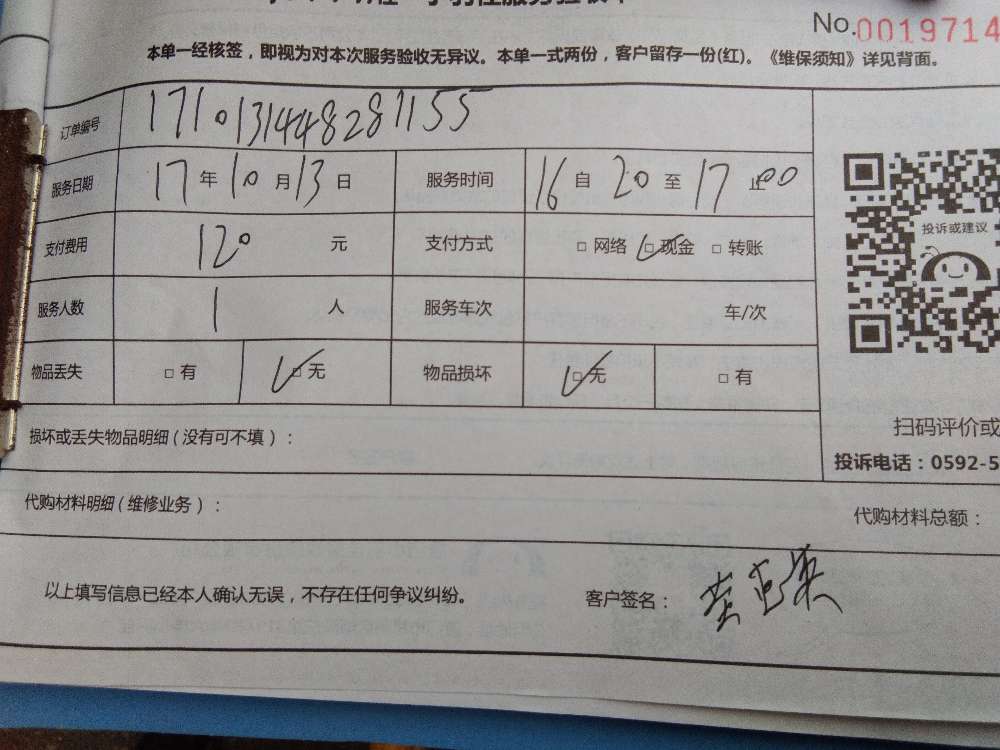 No.0019714
本单一经核签，即视为对本次服务验收无异议。本单一式两份，客户留存一份(红)。《维保须知》详见背面。
订单编号 17101314448281155
服务日期 17年10月13日 服务时间 16自20至17止00
支付费用 120元 支付方式 □网络 □现金 □转账
投诉或建议
服务人数 1人 服务车次 车/次
物品丢失 □有 □无 物品损坏 □无 □有
扫码评价或
损坏或丢失物品明细(没有可不填)：
投诉电话：0592-5
代购材料明细(维修业务)：
代购材料总额：
以上填写信息已经本人确认无误，不存在任何争议纠纷。 客户签名：